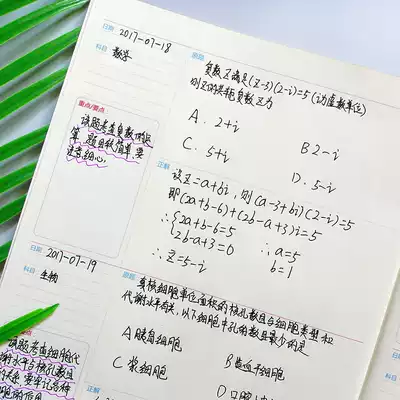 日期 2017-07-18
科目 数学
原题
复数Z满足(Z-3)(2-i)=5(i为虚数单位)
则Z的共轭复数Z为
A. 2+i
B 2-i
C. 5+i
D. 5-i
重点/难点
该题考查复数的运
算,题目较简单,要
过考细心.
正解
设Z=a+bi,则(a-3+bi)(2-i)=5
即(2a+b-6)+(2b-a+3)i=5
∴{2a+b-6=5
2b-a+3=0
∴a=5
b=1
∴Z=5-i
日期 2017-07-19
科目 生物
原题
真核细胞单位面积的核孔数目与细胞类型和
代谢水平有关,以下细胞中核孔的数目最少的是
A 胰岛细胞
B 造血干细胞
C 浆细胞
D 口腔
重点/难点
该题考查细胞代
谢水平与核孔数目
的关系
正解